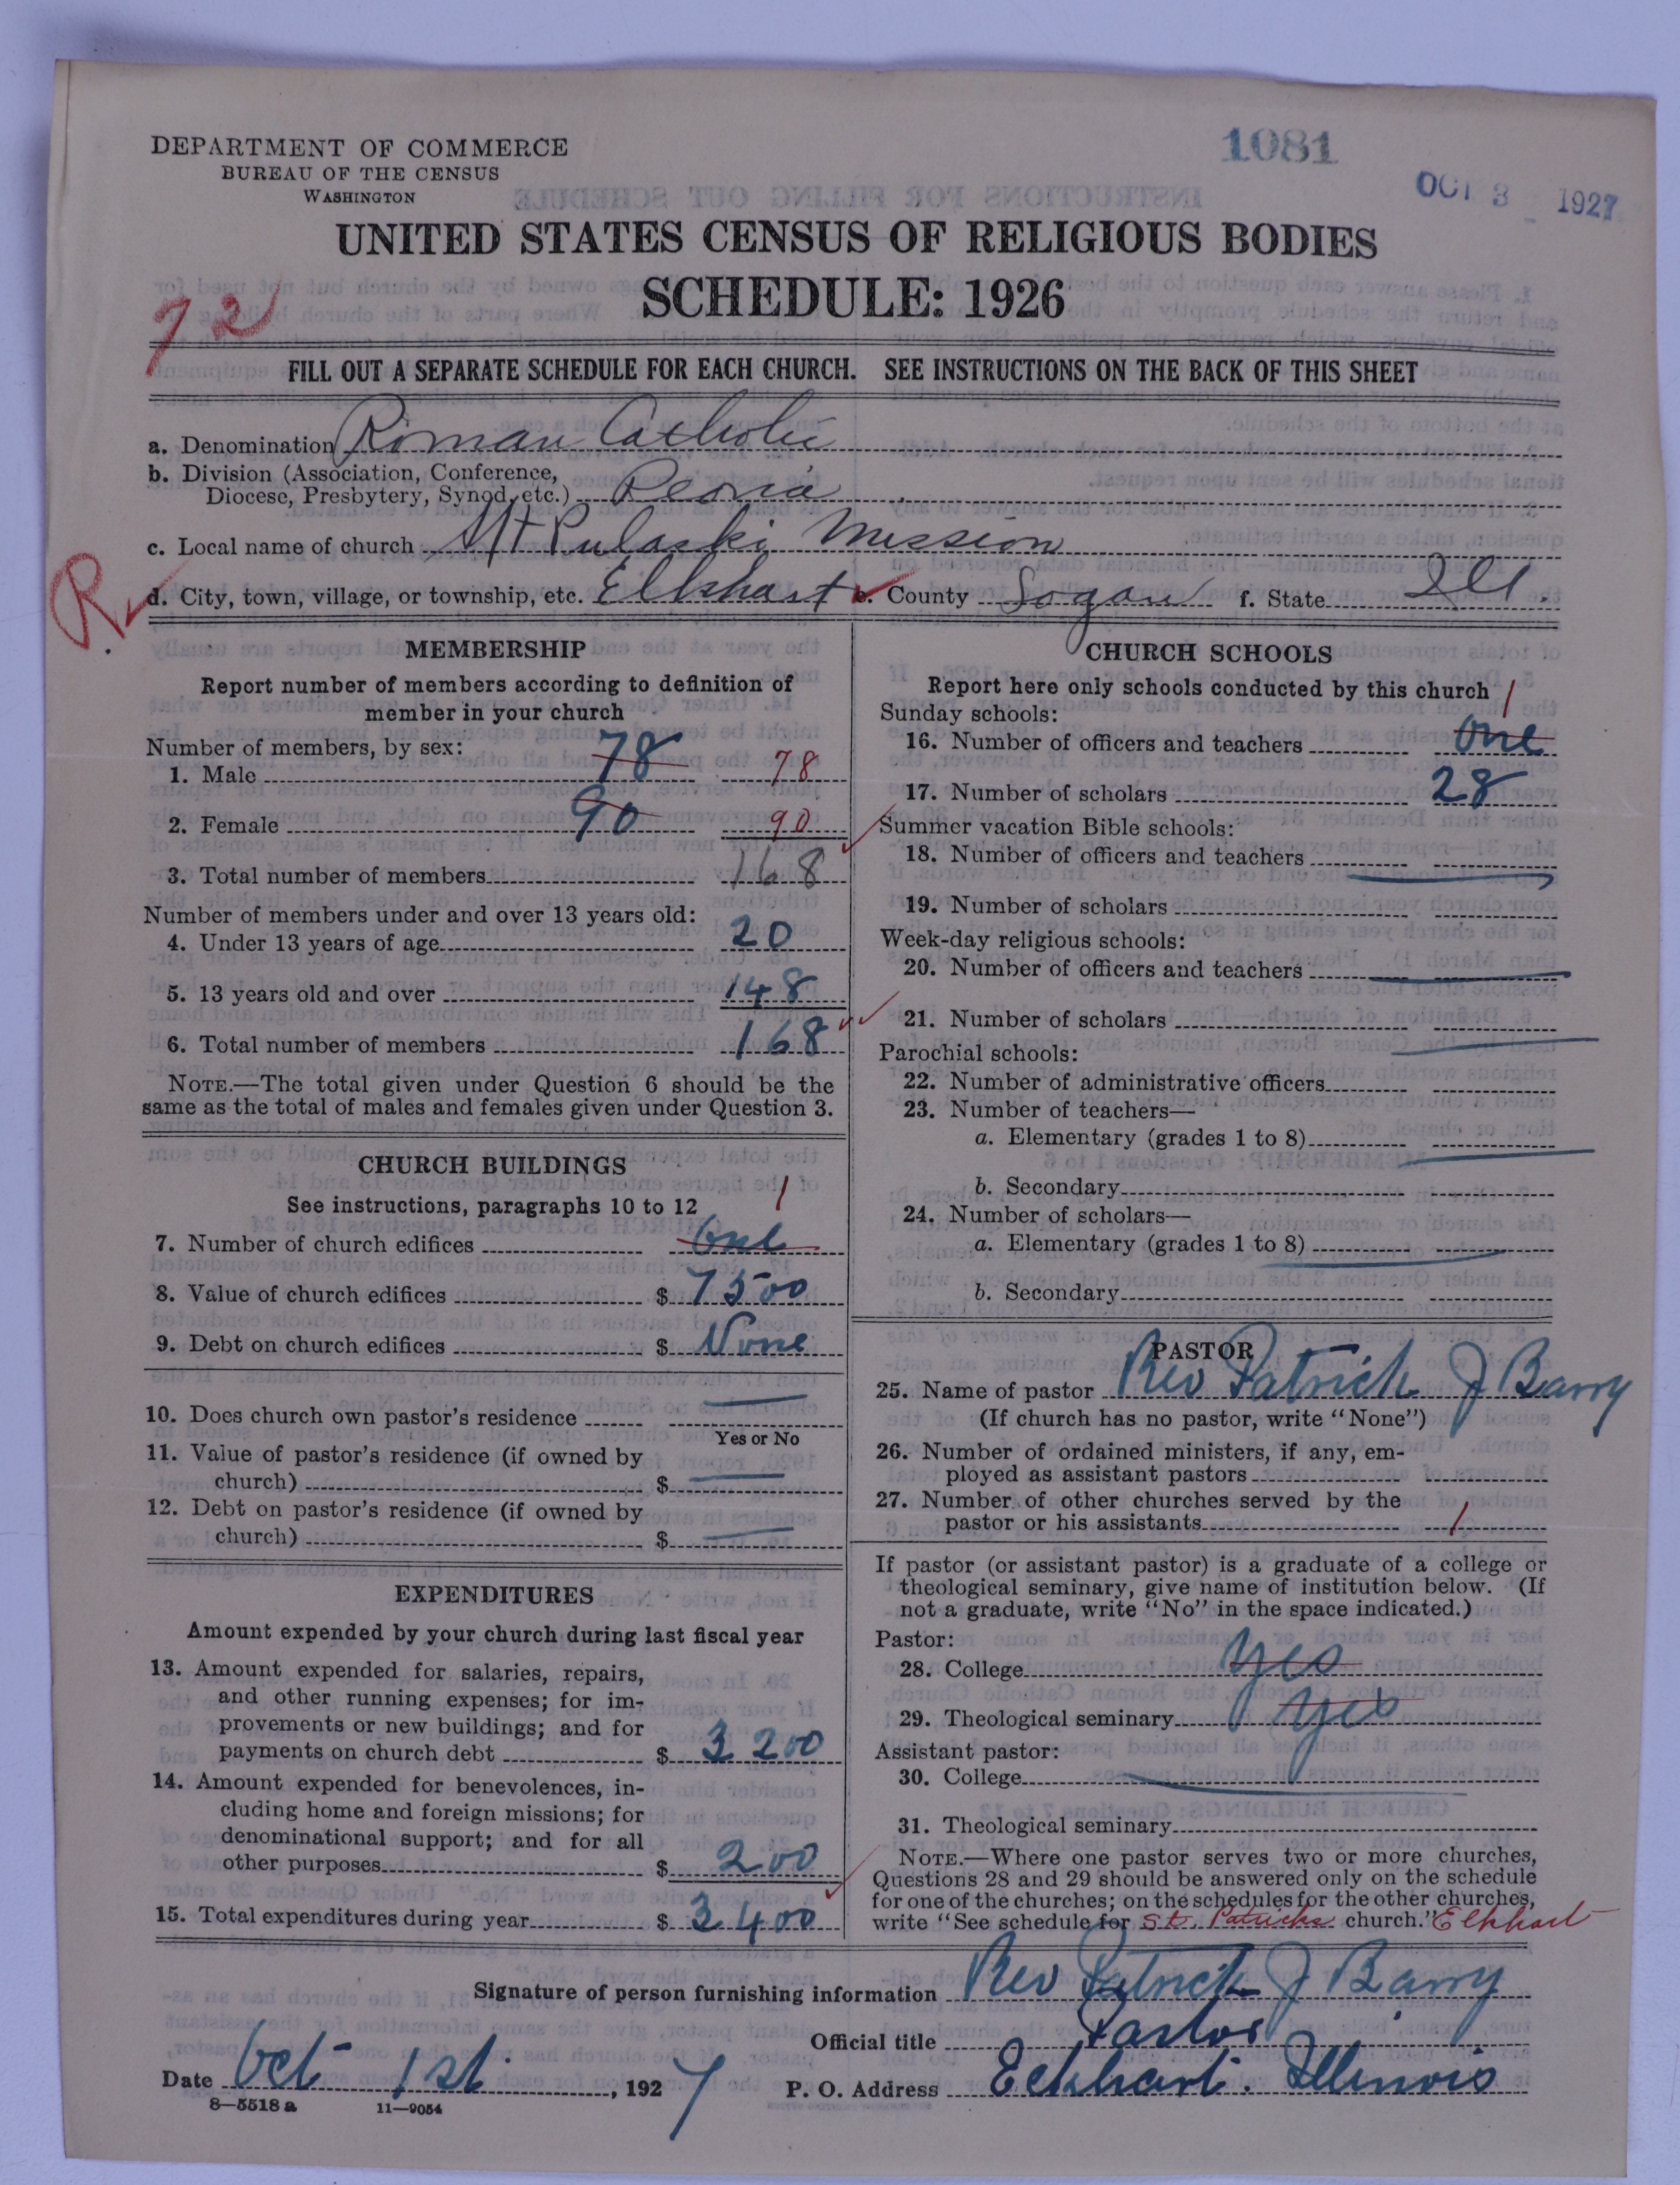 DEPARTMENT OF COMMERCE
BUREAU OF THE CENSUS
WASHINGTON
1081
OCT 3 1927
UNITED STATES CENSUS OF RELIGIOUS BODIES
SCHEDULE: 1926
72
FILL OUT A SEPARATE SCHEDULE FOR EACH CHURCH. SEE INSTRUCTIONS ON THE BACK OF THIS SHEET
a. Denomination Roman Catholic
b. Division (Association, Conference,
Diocese, Presbytery, Synod, etc.) Peoria
c. Local name of church Mt Pulaski Mission
R
d. City, town, village, or township, etc. Elkhart e. County Logan f. State Ill.
MEMBERSHIP
Report number of members according to definition of
member in your church
Number of members, by sex:
1. Male 78 78
2. Female 90 90
3. Total number of members 168
Number of members under and over 13 years old:
4. Under 13 years of age 20
5. 13 years old and over 148
6. Total number of members 168
NOTE.—The total given under Question 6 should be the
same as the total of males and females given under Question 3.
CHURCH BUILDINGS
See instructions, paragraphs 10 to 12 1
7. Number of church edifices One
8. Value of church edifices $ 7500
9. Debt on church edifices $ None
10. Does church own pastor's residence
Yes or No
11. Value of pastor's residence (if owned by
church) $
12. Debt on pastor's residence (if owned by
church) $
EXPENDITURES
Amount expended by your church during last fiscal year
13. Amount expended for salaries, repairs,
and other running expenses; for im-
provements or new buildings; and for
payments on church debt $ 3200
14. Amount expended for benevolences, in-
cluding home and foreign missions; for
denominational support; and for all
other purposes $ 200
15. Total expenditures during year $ 3400
CHURCH SCHOOLS
Report here only schools conducted by this church 1
Sunday schools:
16. Number of officers and teachers One
17. Number of scholars 28
Summer vacation Bible schools:
18. Number of officers and teachers
19. Number of scholars
Week-day religious schools:
20. Number of officers and teachers
21. Number of scholars
Parochial schools:
22. Number of administrative officers
23. Number of teachers—
a. Elementary (grades 1 to 8)
b. Secondary
24. Number of scholars—
a. Elementary (grades 1 to 8)
b. Secondary
PASTOR
25. Name of pastor Rev Patrick J Barry
(If church has no pastor, write "None")
26. Number of ordained ministers, if any, em-
ployed as assistant pastors
27. Number of other churches served by the
pastor or his assistants 1
If pastor (or assistant pastor) is a graduate of a college or
theological seminary, give name of institution below. (If
not a graduate, write "No" in the space indicated.)
Pastor:
28. College Yes
29. Theological seminary Yes
Assistant pastor:
30. College
31. Theological seminary
NOTE.—Where one pastor serves two or more churches,
Questions 28 and 29 should be answered only on the schedule
for one of the churches; on the schedules for the other churches,
write "See schedule for St. Patricks church." Elkhart
Signature of person furnishing information Rev Patrick J Barry
Official title Pastor
Date Oct 1st, 1927 P. O. Address Elkhart. Illinois
8—5518 a 11—9054